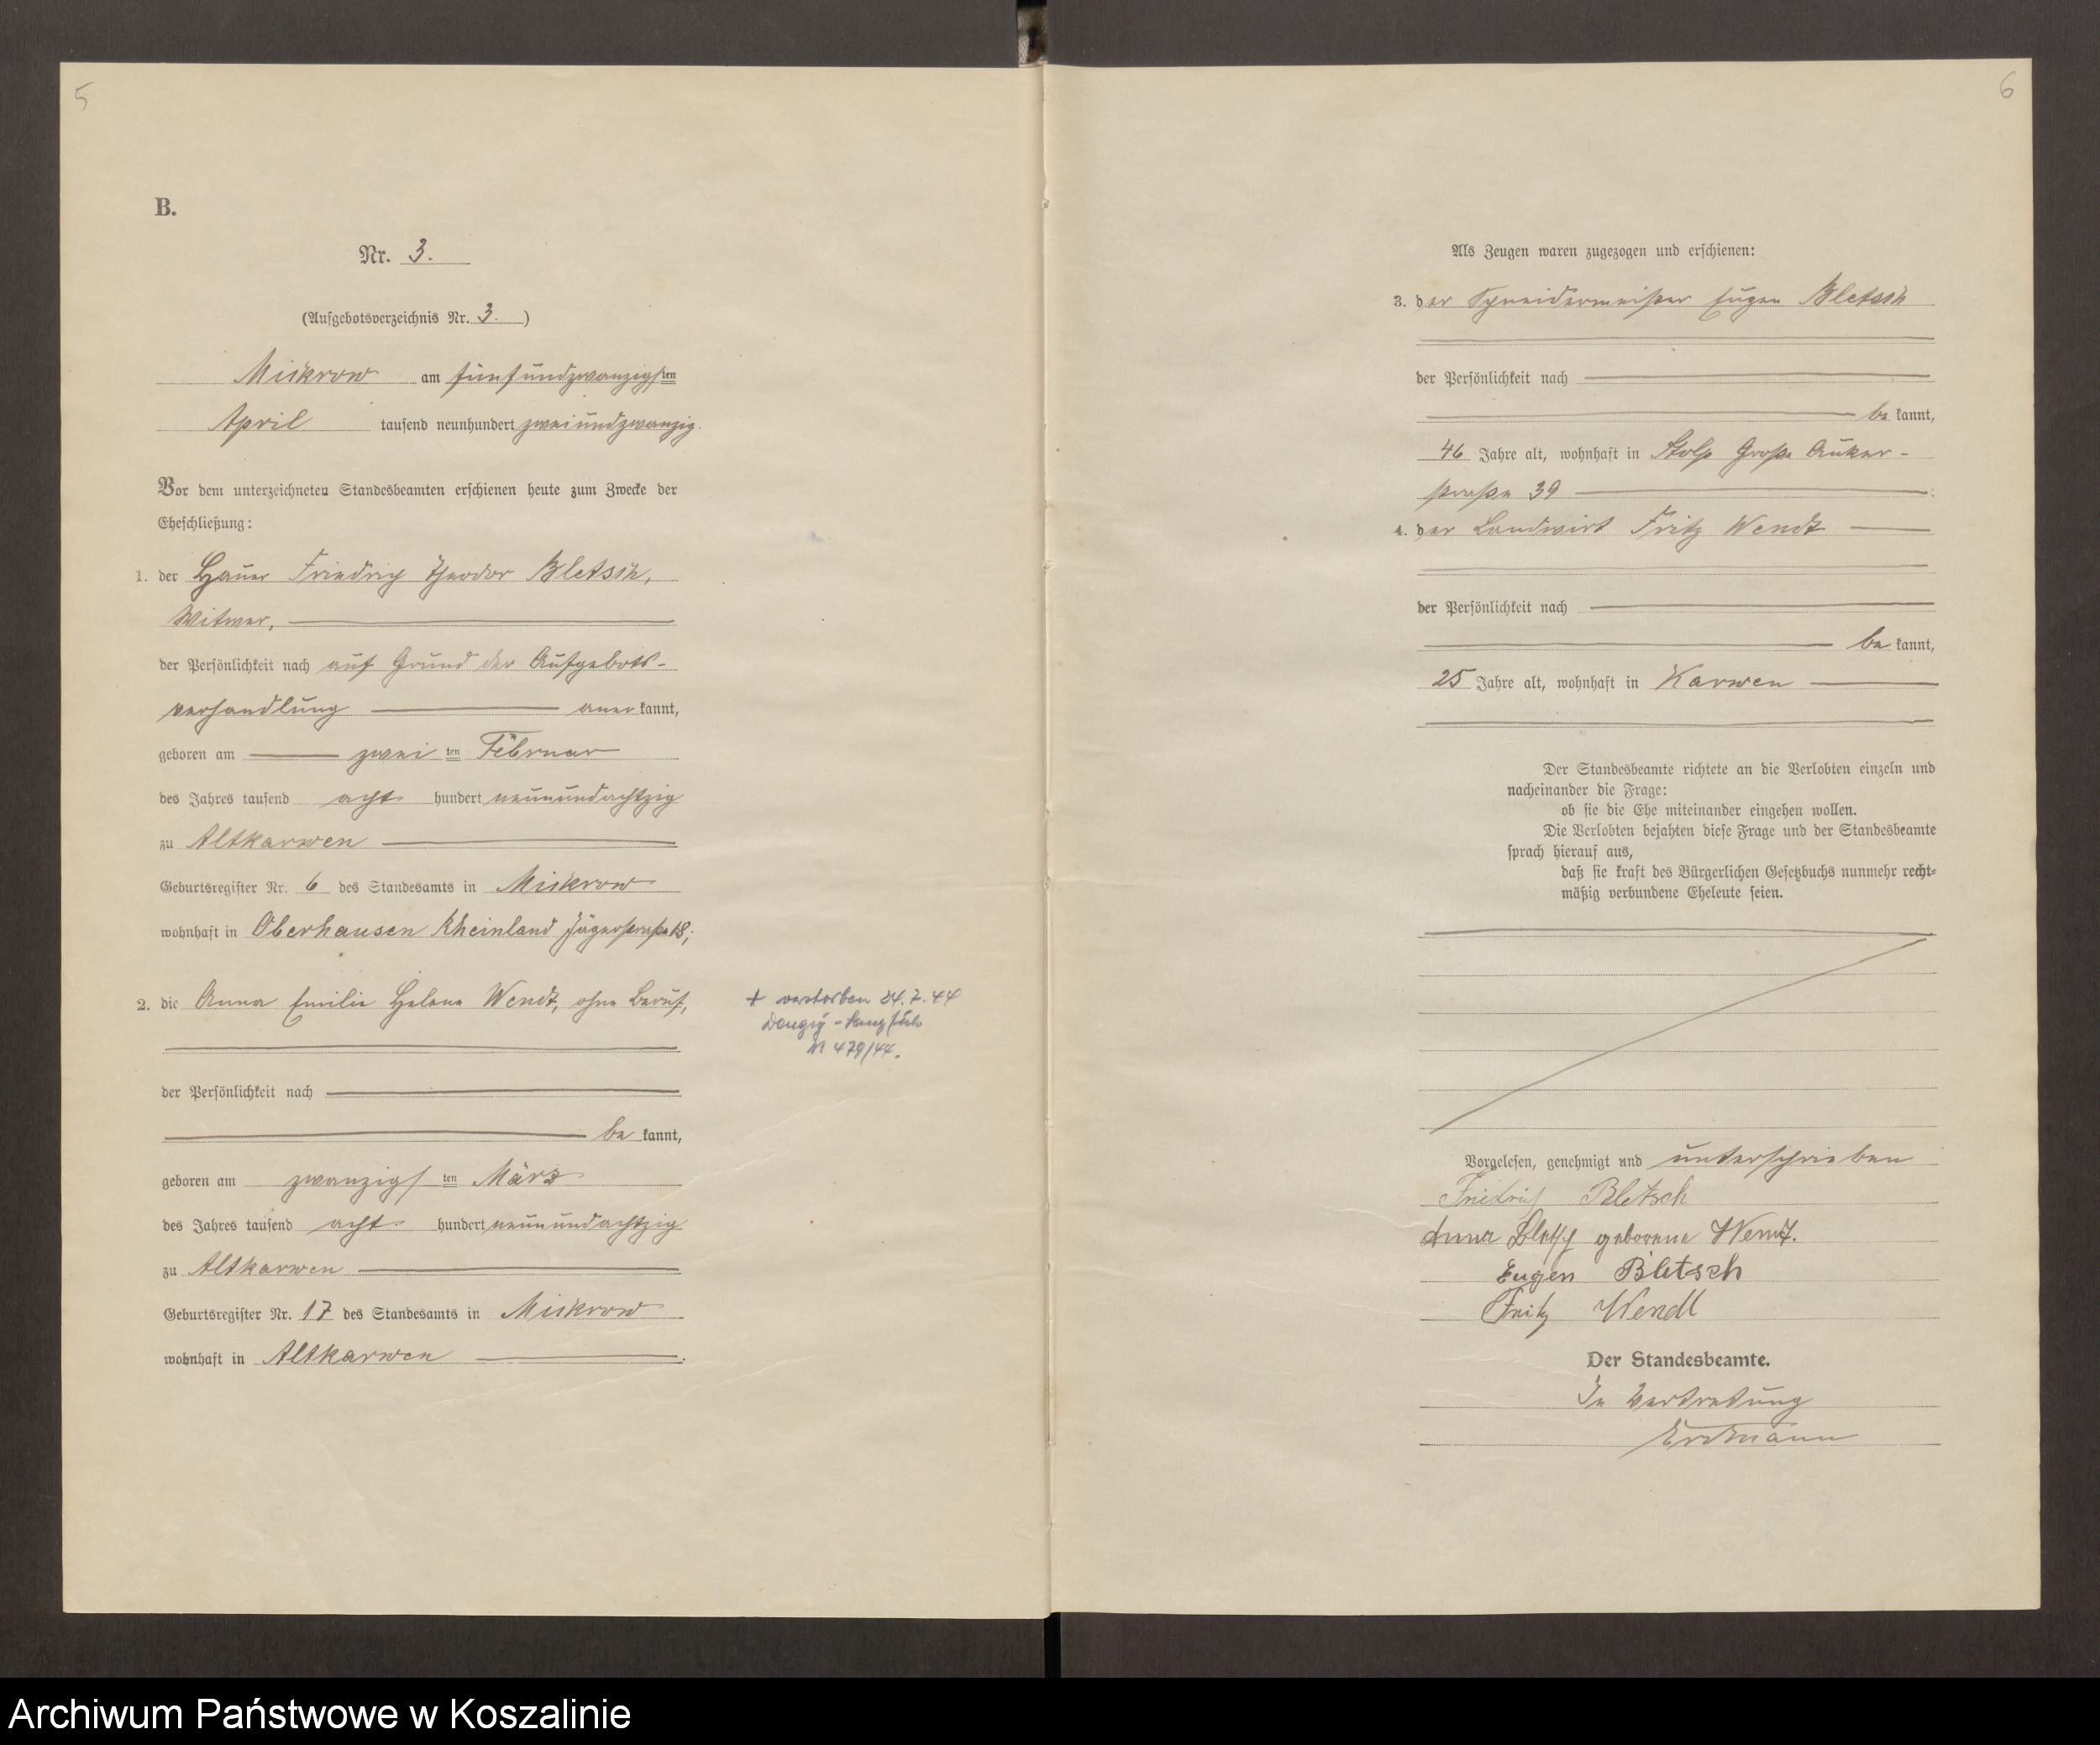 5
B.
Nr. 3.
(Aufgebotsverzeichnis Nr. 3. )
Mickrow am fünfundzwanzigsten
April tausend neunhundert zweiundzwanzig.
Vor dem unterzeichneten Standesbeamten erschienen heute zum Zwecke der
Eheschließung:
1. der Hauer Friedrich Theodor Bletsch,
Witwer,
der Persönlichkeit nach auf Grund der Aufgebots-
verhandlung anerkannt,
geboren am zweiten Februar
des Jahres tausend acht hundert neunundachtzig
zu Altkarwen
Geburtsregister Nr. 6 des Standesamts in Mickrow
wohnhaft in Oberhausen Rheinland Jägerstraße 18;
2. die Anna Emilie Helene Wendt, ohne Beruf,
der Persönlichkeit nach
bekannt,
geboren am zwanzigsten März
des Jahres tausend acht hundert neunundachtzig
zu Altkarwen
Geburtsregister Nr. 17 des Standesamts in Mickrow
wohnhaft in Altkarwen
+ verstorben 24.7.44
Danzig-Langfuhr
Nr 479/44.
6
Als Zeugen waren zugezogen und erschienen:
3. der Schneidermeister Eugen Bletsch
der Persönlichkeit nach
bekannt,
46 Jahre alt, wohnhaft in Stolp Große Auker-
straße 39
4. der Landwirt Fritz Wendt
der Persönlichkeit nach
bekannt,
25 Jahre alt, wohnhaft in Karwen
Der Standesbeamte richtete an die Verlobten einzeln und
nacheinander die Frage:
ob sie die Ehe miteinander eingehen wollen.
Die Verlobten bejahten diese Frage und der Standesbeamte
sprach hierauf aus,
daß sie kraft des Bürgerlichen Gesetzbuchs nunmehr recht-
mäßig verbundene Eheleute seien.
Vorgelesen, genehmigt und unterschrieben
Friedrich Bletsch
Anna Bletsch geborene Wendt.
Eugen Bletsch
Fritz Wendt
Der Standesbeamte.
In Vertretung
Erdmann
Archiwum Państwowe w Koszalinie